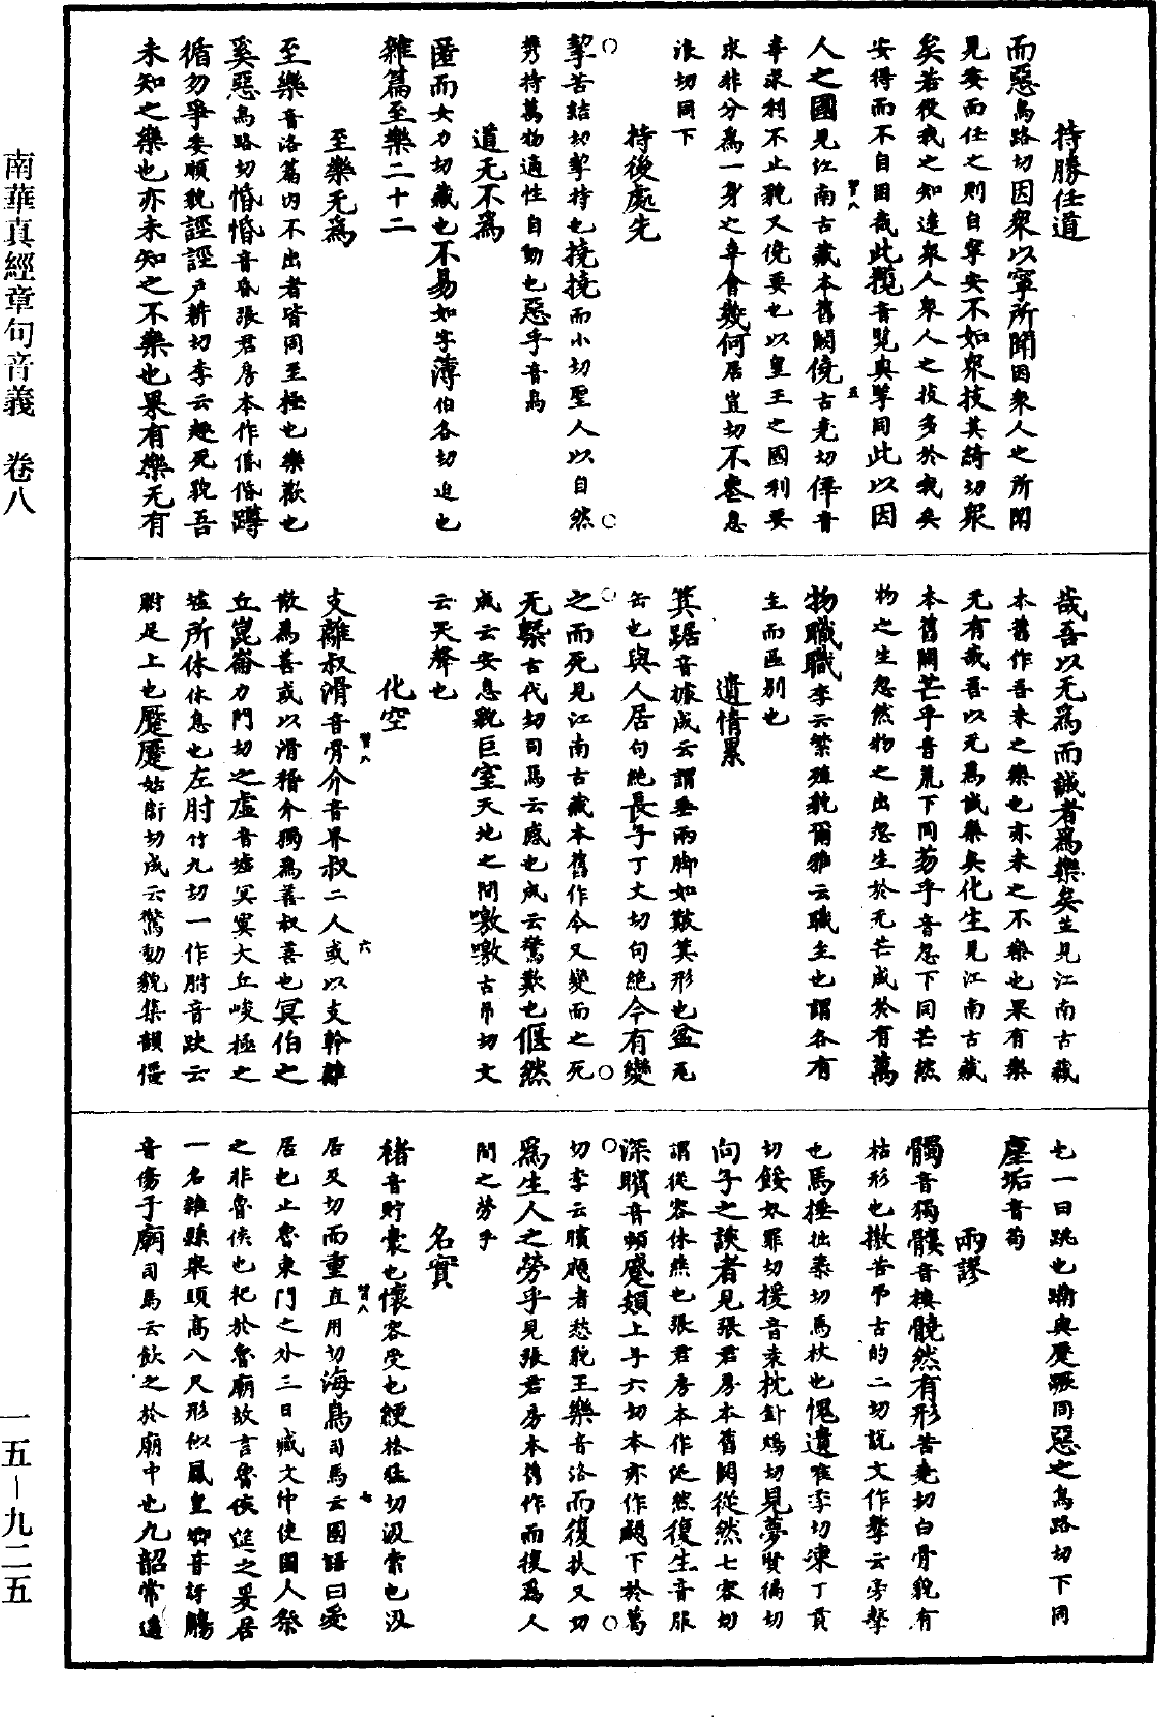 持勝任道
而惡烏路切因衆以寧所聞因衆人之所聞
見安而任之則自寧安不如衆技其綺切衆
矣若役我之知達衆人衆人之技多於我矣
安得而不自困哉此攬音覽與擥同此以因
人之國見江南古藏本舊闕僥古堯切倖音
幸求利不止貌又僥要也以皇王之國利要
求非分爲一身之幸會幾何居豈切不喪息
浪切同下
持後處先
挈苦結切挈持也撓撓而小切聖人以自然
携持萬物適性自動也惡乎音烏
道无不爲
匿而女力切藏也不易如字薄伯各切迫也
雜篇至樂二十二
至樂无爲
至樂音洛篇内不出者皆同至極也樂歡也
奚惡烏路切惛惛音昏張君房本作惛惛蹲
循勿爭委順貌誙誙戶耕切李云趣死貌吾
未知之樂也亦未知之不樂也果有樂无有
哉吾以无爲而誠者爲樂矣並見江南古藏
本舊作吾未之樂也亦未之不樂也果有樂
无有哉吾以无爲誠樂矣化生見江南古藏
本舊闕芒乎音荒下同芴乎音忽下同芒然
物之生忽然物之出忽生於无芒成於有萬
物職職李云繁殖貌爾雅云職主也謂各有
主而區別也
遺情累
箕踞音據成云謂垂兩脚如簸箕形也盆瓦
缶也與人居句絶長子丁丈切句絶今有變
之而死見江南古藏本舊作今又變而之死
无槩古代切司馬云感也成云驚歎也偃然
成云安息貌巨室天地之間噭噭古弔切文
云哭聲也
化空
支離叔滑音骨介音界叔二人或以支幹離
散爲善或以滑稽介獨爲善叔善也冥伯之
丘崑崙力門切之虛音墟冥冥大丘峻極之
墟所休休息也左肘竹九切一作胕音趺云
胕足上也蹷蹷姑衛切成云驚動貌集韻僵
也一曰跳也蹶與蹷蹶同惡之烏路切下同
塵垢音苟
兩謬
髑音獨髏音樓髐然有形苦堯切白骨貌有
枯形也撽苦弔古的二切説文作擊云旁擊
也馬捶拙蘂切馬杖也愧遺唯季切凍丁貢
切餒奴罪切援音袁枕針鴆切見夢賢徧切
向子之談者見張君房本舊闕從然七容切
謂從容休焦也張君房本作泛然復生音服
深矉音頻蹙頞上子六切本亦作顣下於葛
切李云矉蹙者愁貌王樂音洛而復扶又切
爲生人之勞乎見張君房本舊作而復爲人
間之勞乎
名實
褚音貯囊也懷容受也綆格猛切汲索也汲
居及切而重直用切海鳥司馬云國語曰爰
居也止魯東門之外三日臧文仲使國人祭
之非魯侯也祀於魯廟故言魯侯迎之爰居
一名雜縣舉頭高八尺形似鳳皇御音訝觴
音傷于廟司馬云飲之於廟中也九韶常遥
南華真經章句音義 卷八
一五－九二五